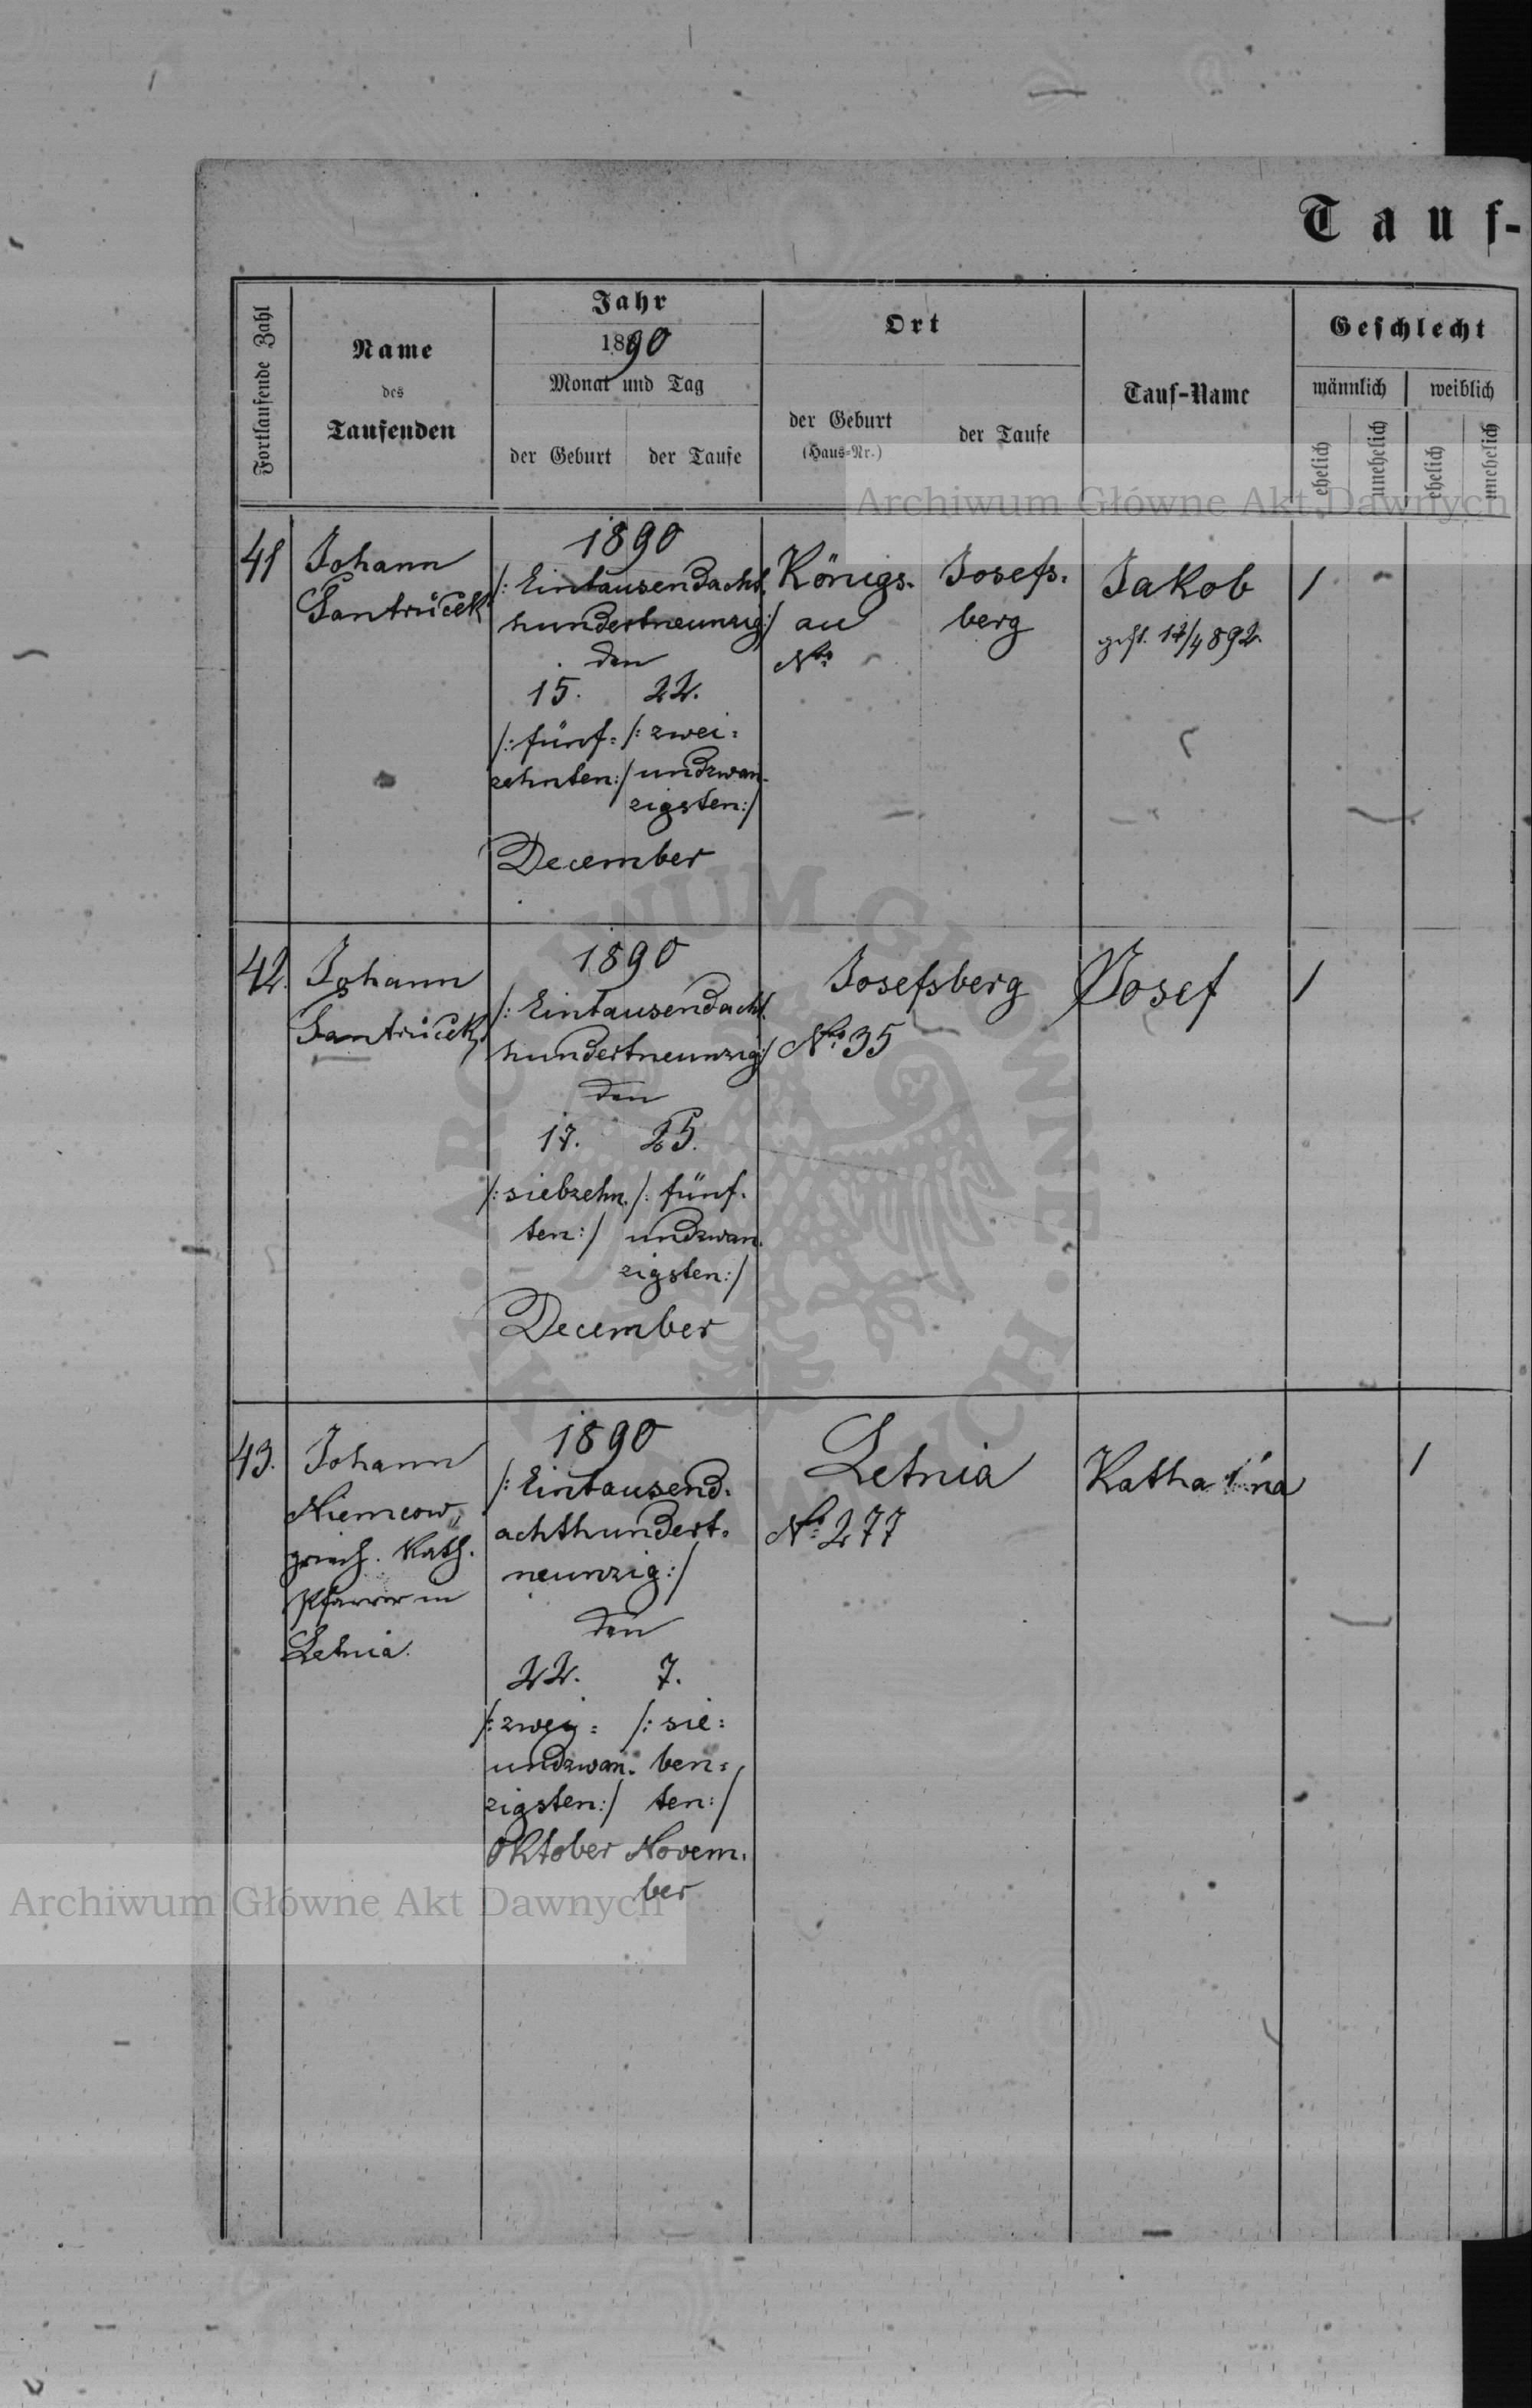 Tauf-
Fortlaufende Zahl
Name
des
Taufenden
Jahr
1890
Monat und Tag
der Geburt
der Taufe
Ort
der Geburt
(Haus-Nr.)
der Taufe
Tauf-Name
Geschlecht
männlich
weiblich
ehelich
unehelich
ehelich
unehelich
41
Johann
1890
/: Eintausendacht-
hundertneunzig :/
den
15. 22.
/: fünf= /: zwei=
zehnten :/ undzwan-
zigsten :/
December
Königs-
au
No
Josefs=
berg
Jakob
gest. 17/4 892.
1
42.
Johann
1890
/: Eintausendacht-
hundertneunzig :/
den
17. 25.
/: siebzehn- /: fünf-
ten :/ undzwan-
zigsten :/
December
Josefsberg
No 35
Josef
1
43.
Johann
Niemcow,
griech. Kath.
Pfarrer in
Letnia.
1890
/: Eintausend=
achthundert=
neunzig :/
den
22. 7.
/: zwey= /: sie=
undzwan- ben=
zigsten :/ ten :/
Oktober Novem-
ber
Letnia
No 277
Katharina
1
Archiwum Główne Akt Dawnych
Archiwum Główne Akt Dawnych